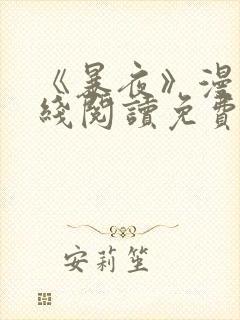 《暴夜》漫
綫閱讀免費
安莉笙